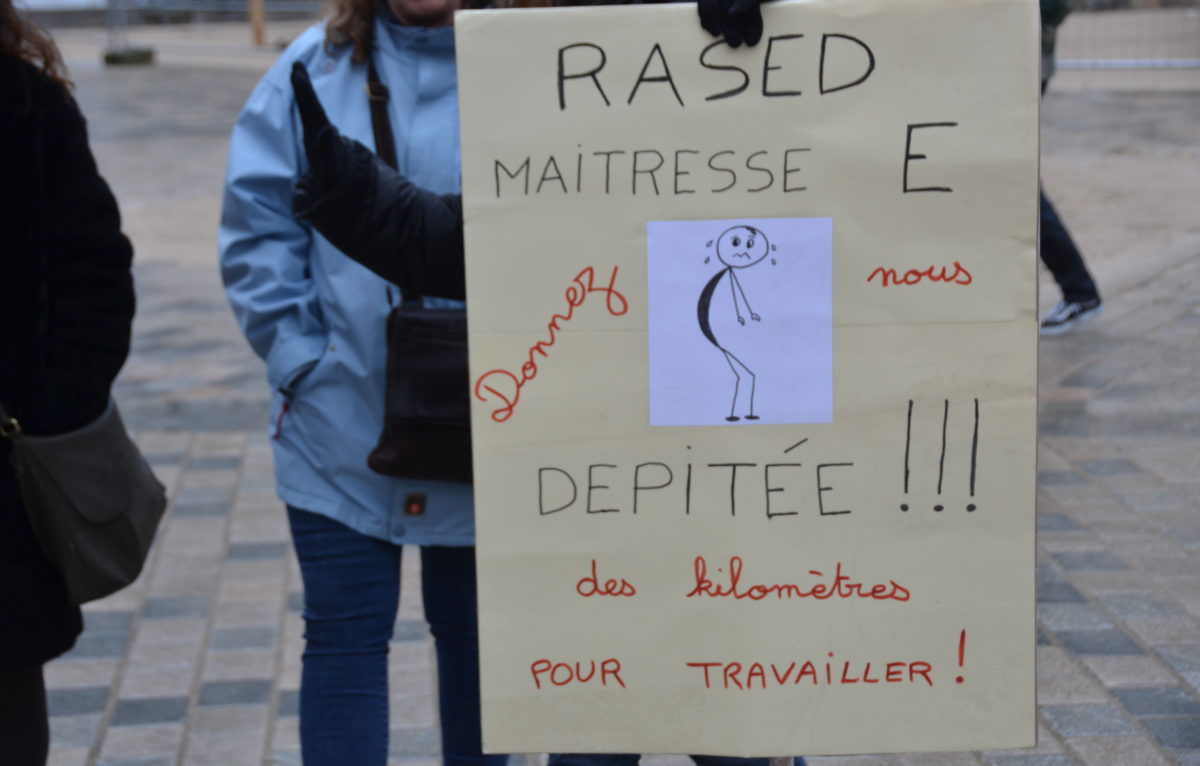 RASED
MAiTRESSE E
Donnez nous
DEPiTÉE !!!
des kilomètres
POUR TRAVAiLLER !